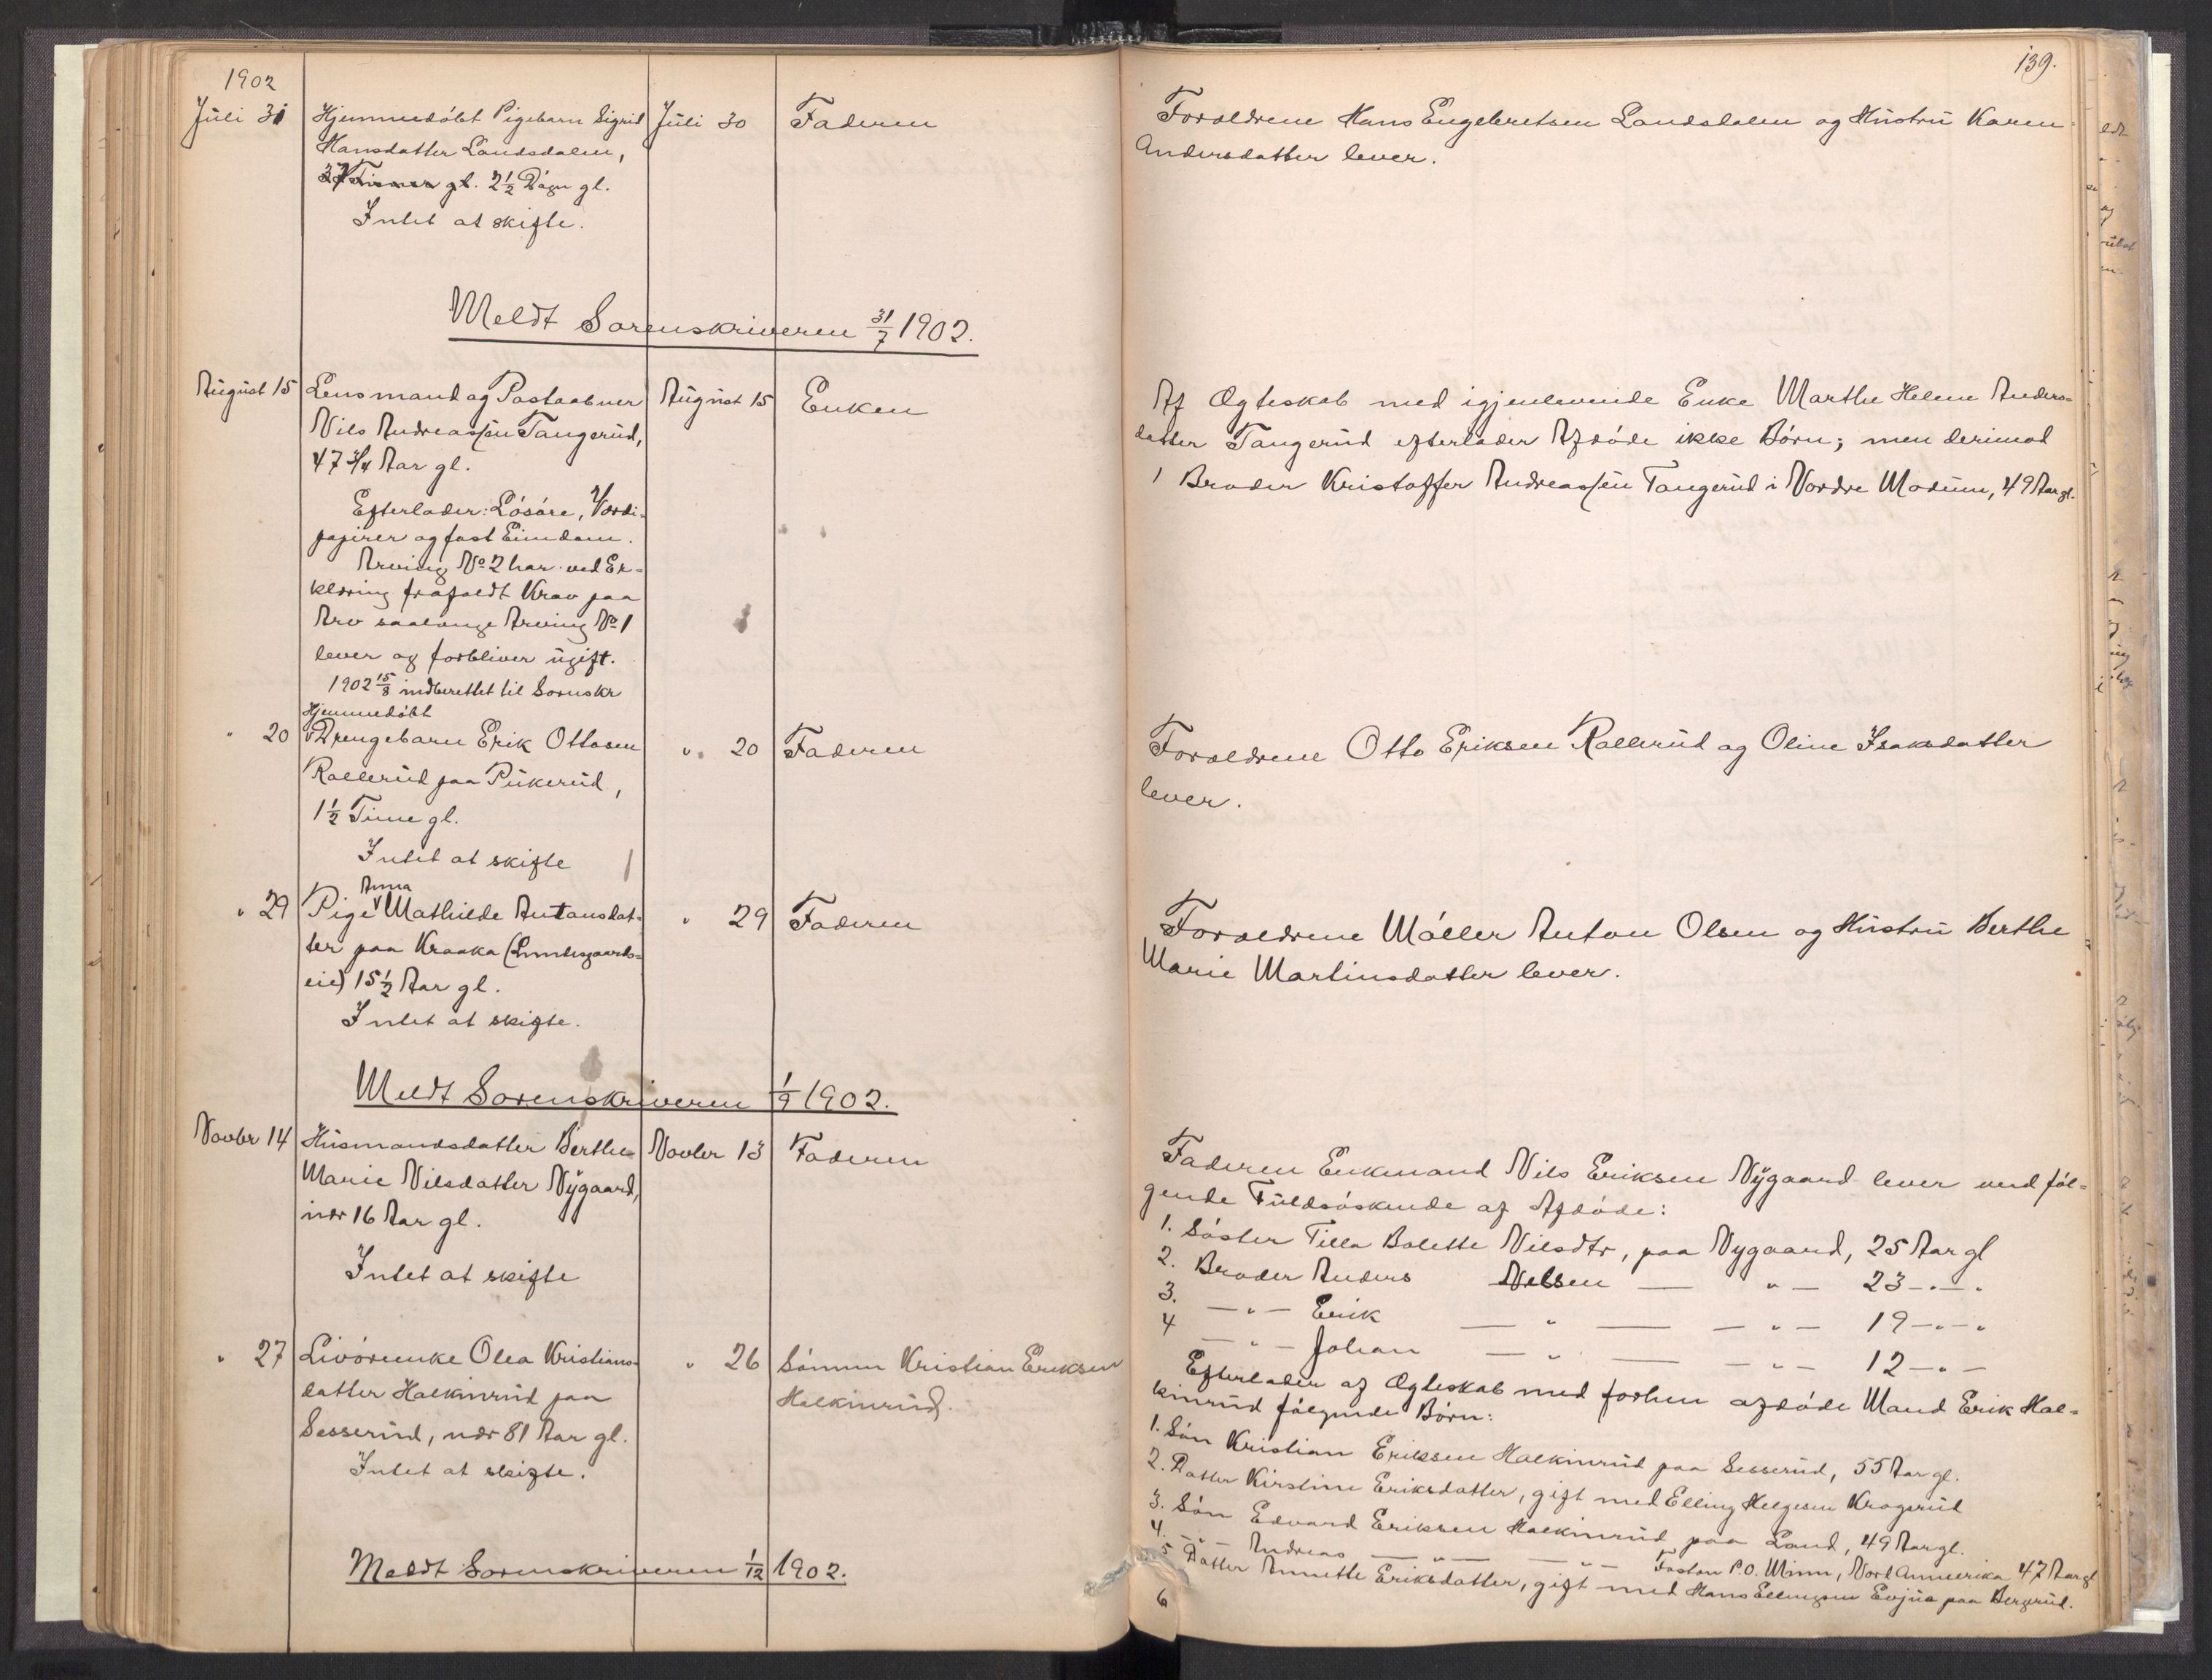 1902
Juli 31 Hjemmedöbt Pigebarn Sigrid Juli 30 Faderen
Hansdatter Landsdalen,
37 Timer gl. 2 1/2 Døgn gl.
Intet at skifte.
Meldt Sorenskriveren 31/7 1902.
August 15 Lensmand og Postaabner August 15 Enken
Nils Andreassen Tangerud,
47 3/4 Aar gl.
Efterlader: Løsøre, Værdi-
papirer og fast Eiendom.
Arving No 2 har ved Er-
klæring frafaldt Krav paa
Arv saalænge Arving No 1
lever og forbliver ugift.
1902 15/8 indberettet til Sorenskr
Hjemmedöbt
" 20 Drengebarn Erik Ottosen " 20 Faderen
Rallerud paa Pukerud,
1 1/2 Time gl.
Intet at skifte
Anna
" 29 Pige Mathilde Antonsdat- " 29 Faderen
ter paa Kraaka (Lundesgaards-
eie) 15 1/2 Aar gl.
Intet at skifte.
Meldt Sorenskriveren 1/9 1902.
Novbr 14 Husmandsdatter Berthe Novber 13 Faderen
Marie Nilsdatter Nÿgaard,
nær 16 Aar gl.
Intet at skifte
" 27 Livörenke Olea Kristians- " 26 Sönnen Kristian Eriksen
datter Halkinrud paa Halkinrud.
Sesserud, nær 81 Aar gl.
Intet at skifte.
Meldt Sorenskriveren 1/12 1902.
139.
Forældrene Hans Engebretsen Landsdalen og Hustru Karen
Andersdatter lever.
Af Ægteskab med igjenlevende Enke Marthe Helene Anders-
datter Tangerud efterlader Afdöde ikke Börn; men derimod
1 Broder Kristoffer Andreassen Tangerud i Nordre Modum, 49 Aar gl.
Forældrene Otto Eriksen Rallerud og Oline Isaksdatter
lever.
Forældrene Möller Anton Olsen og Hustru Berthe
Marie Martinsdatter lever.
Faderen Enkemand Nils Eriksen Nÿgaard lever med föl-
gende Fuldsöskende af Afdöde:
1. Söster Tilla Bolette Nilsdtr, paa Nygaard, 25 Aar gl
2. Broder Anders Nilsen — " — 23 — " — "
3. — " — Erik — " — — " — 19 — " — "
4 — " — Johan — " — — " — 12 — " —
Efterlader af Ægteskab med forhen afdöde Mand Erik Hal-
kinrud fölgende Börn:
1. Sön Kristian Eriksen Halkinrud paa Sesserud, 55 Aar gl.
2. Datter Kirstine Eriksdatter, gift med Elling Helgesen Kragerud
3. Sön Edvard Eriksen Halkinrud paa Land, 49 Aar gl.
4. — " — Andreas — " — — " — Foston P.O. Minn, Nord Ammerika 47 Aar gl
5 Datter Annette Eriksdatter, gift med Hans Ellingsen Evjua paa Bergerud.
6